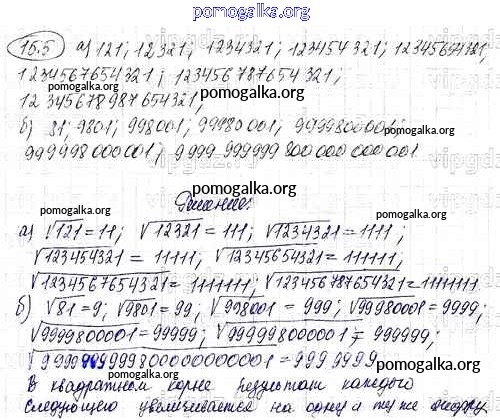 pomogalka.org
16.5 а) 121; 12321; 1234321; 123454321; 12345654321;
1234567654321; 123456787654321;
12345678987654321;
pomogalka.org
б) 81; 9801; 998001; 99980001; 9999800001;
999998000001; 9999 999999 800 000 000 001
pomogalka.org
Решение:
pomogalka.org
а) √121 = 11; √12321 = 111; √1234321 = 1111;
√123454321 = 11111; √12345654321 = 111111;
√1234567654321 = 1111111; √123456787654321 = 11111111.
pomogalka.org
б) √81 = 9; √9801 = 99; √998001 = 999; √99980001 = 9999;
√9999800001 = 99999; √999998000001 = 999999;
= 9999999
В квадратном корне результат каждого
pomogalka.org
следующего увеличивается на одну и ту же цифру.